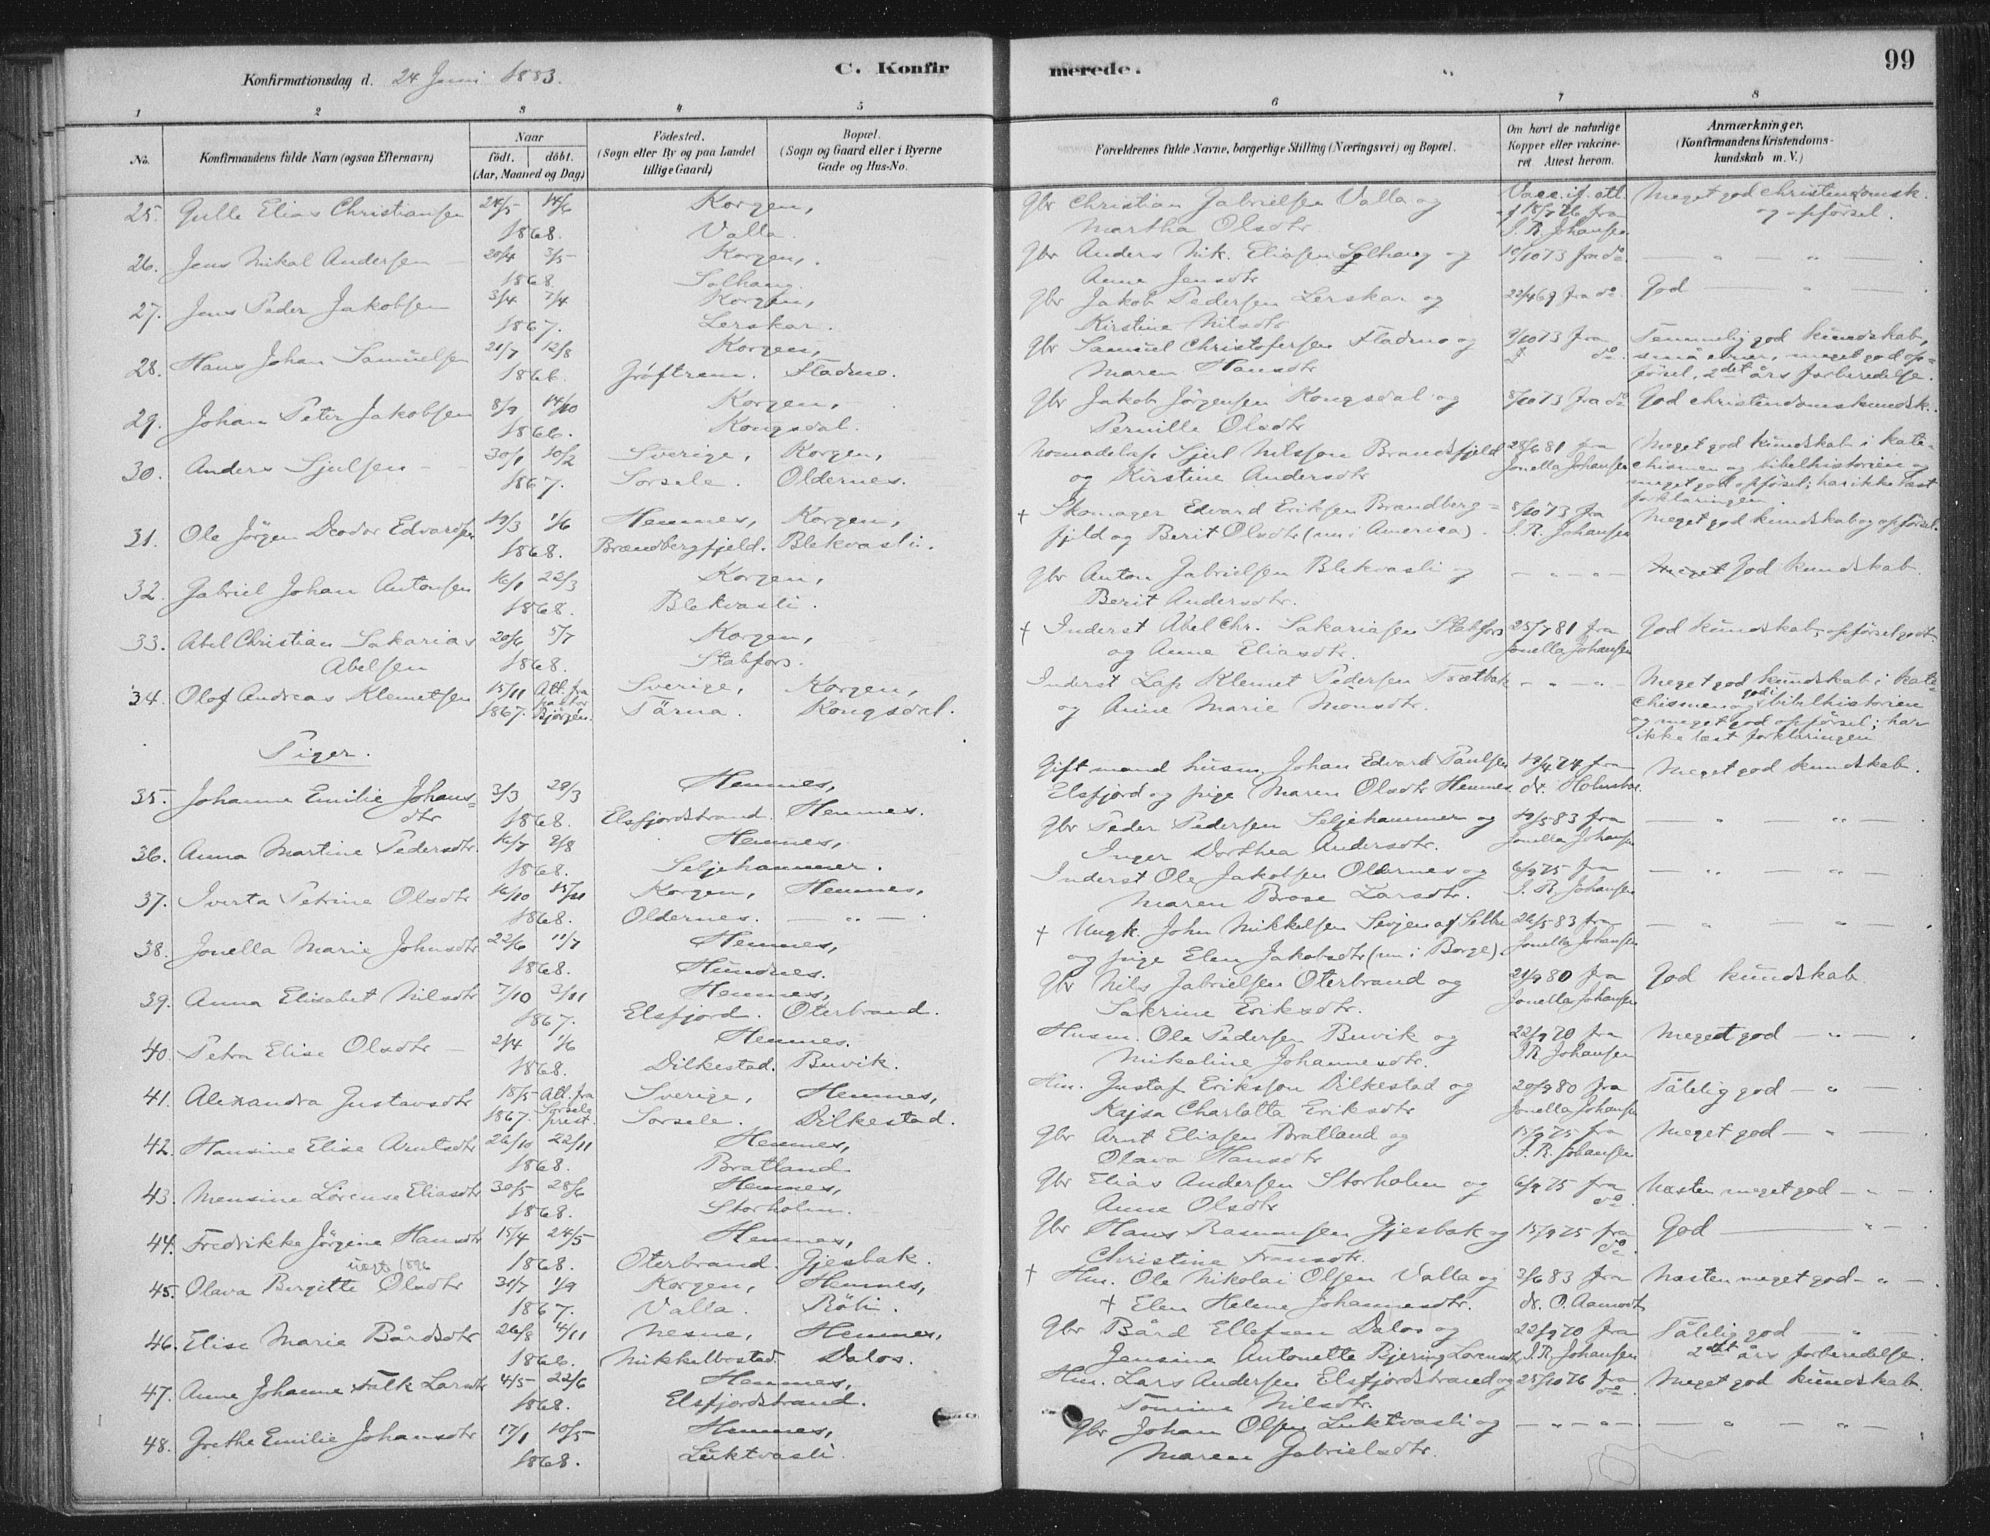 99
Konfirmationsdag d. 24 Juni 1883. C. Konfir merede.
1 2 3 4 5 6 7 8
No. Konfirmandens fulde Navn (ogsaa Efternavn) Naar födt. döbt. (Aar, Maaned og Dag) Födested. (Sogn eller By og paa Landet tillige Gaard) Bopæl. (Sogn og Gaard eller i Byerne Gade og Hus-No.
Forældrenes fulde Navne, borgerlige Stilling (Næringsvei) og Bopæl. Om havt de naturlige Kopper eller vakcineret. Attest herom. Anmærkninger. (Konfirmandens Kristendomskundskab m. V.)
25. Gulle Elias Christiansen 24/5 14/6 Korgen, Gbr Christian Gabrielsen Valla og Vacc. if. att. Meget god christendomsk.
1868. Valla. Martha Olsdtr. 18/7 76 fra J. R. Johansen og opförsel.
26. Jens Nikal Andersen 20/4 3/5 Korgen, Gbr Anders Nik. Eliasen Solhaug og 10/10 73 fra do — " — " —
1868. Solhaug. Anne Jensdtr
27. Jens Peder Jakobsen 3/4 7/4 Korgen, Gbr Jakob Pedersen Lerskar og 22/4 69 fra do. God — " —
1867. Lerskar. Kirstine Nilsdtr
28. Hans Johan Samuelsen 21/7 12/8 Korgen, Gbr Samuel Christofersen Fladmo og 9/10 73 fra do. Temmelig god kundskab,
1866. Gröftrem. Fladmo. Maren Hansdtr små evner, meget god opförsel, 2det års forberedelse.
29. Johan Peter Jakobsen 8/9 14/10 Korgen, Gbr Jakob Jörgensen Kongsdal og 8/10 73 fra do God christendomskundsk.
1866. Kongsdal. Pernille Olsdtr
30. Anders Sjulsen 30/1 10/2 Sverige, Korgen, Nomadelap Sjul Nilsson Brandsfjeld 28/6 81 fra Meget god kundskab i kate-
1867. Sorsele. Oldernes. og Kirstine Andersdtr Jonella Johansen chismen og bibelhistorien og
meget god opförsel; har ikke læst
forklaringen.
31. Ole Jörgen Deodor Edvardsen 19/3 1/6 Hemnes, Korgen, + Skomager Edvard Eriksen Brandberg- 8/10 73 fra Meget god kundskab og opförsel.
1868. Brændbergfjeld. Blekvasli. fjeld og Berit Olsdtr (nu i America). J. R. Johansen
32. Gabriel Johan Antonsen 16/1 22/3 Korgen, Gbr Anton Gabrielsen Blekvasli og — " — " — Meget God kundskab.
1868. Blekvasli. Berit Andersdtr.
33. Abel Christian Sakarias 20/6 5/7 Korgen, + Inderst Abel Chr. Sakariasen Stabfors 25/7 81 fra God kundskab, opförsel godt.
Abelsen 1868. Stabfors. og Anne Eliasdtr. Jonella Johansen
34. Olof Andreas Klemetsen 15/11 Att. fra Sverige, Korgen, Inderst Lap Klemet Pedersen Tvætbak — " — " — Meget god kundskab i kate-
1867. pastor Björgén. Tärna. Kongsdal. og Anne Marie Monsdtr. chismen og god i bibelhistorien
og meget god opförsel; har
ikke læst forklaringen
Piger.
35. Johanne Emilie Johans- 3/3 29/3 Hemnes, Gift mand husm. Johan Edvard Paulsen 19/4 74 fra Meget god kundskab.
dtr 1868. Elsfjordstrand. Hemnes. Elsfjord og pige Maren Olsdtr Hemnes dr. Holmboe.
36. Anna Martine Pedersdtr. 16/7 9/8 Hemnes, Gbr Peder Pedersen Seljehammer og 19/5 83 fra — " — " —
1868. Seljehammer. Inger Dorthea Andersdtr. Jonella Johansen
37. Sverta Petrine Olsdtr 16/10 15/11 Korgen, Hemnes, Inderst Ole Jakobsen Oldernes og 6/9 75 fra — " — " —
1868. Oldernes. — " — Maren Brose Larsdtr. J. R. Johansen
38. Jonella Marie Johnsdtr 22/6 11/7 Hemnes, + Ungk. John Mikkelsen Sevjen af Selbu 26/5 83 fra — " — " —
1868. Hundnes. og pige Elen Jakobsdtr (nu i Borge). Jonella Johansen
39. Anna Elisabet Nilsdtr 7/10 3/11 Hemnes, Gbr Nils Gabrielsen Oterbrand og 21/9 80 fra God kundskab.
1867. Elsfjord. Oterbrand. Sakrine Eriksdtr. Jonella Johansen
40. Petra Elise Olsdtr — 2/4 1/6 Hemnes. Husm. Ole Pedersen Buvik og 22/9 70 fra Meget god — " —
1868. Dilkestad. Buvik. Nikoline Johannesdtr. J. R. Johansen
41. Alexandra Gustavsdtr 18/5 Att. fra Sverige, Hemnes, Hm. Gustaf Eriksson Dilkestad og 20/9 80 fra Tålelig god — " —
1867. Sorsele prest. Sorsele. Dilkestad. Kajsa Charlotta Eriksdtr Jonella Johansen
42. Hansine Elise Arntsdtr 26/10 22/11 Hemnes, Gbr Arnt Eliasen Bratland og 15/9 75 fra Meget god — " —
1868. Bratland Olava Hansdtr J. R. Johansen
43. Mensine Lorense Eliasdtr 30/5 28/6 Hemnes, Gbr Elias Andersen Storholm og 6/9 75 fra do Næsten meget god — " —
1868. Storholm. Anne Olsdtr
44. Fredrikke Jörgine Hansdtr 15/4 24/5 Hemnes, Gbr Hans Rasmussen Gjesbak og 15/9 75 fra do. God — " —
1868. Oterbrand. Gjesbak. Christine Fransdtr.
1896
45. Olava Bergitte Olsdtr 31/7 1/9 Korgen, Hemnes, + Hm. Ole Nikolai Olsen Valla og 3/6 83 fra Næsten meget god — " —
1867. Valla. Röli. + Elen Helene Johannesdtr. dr. O. Aamodt
46. Elise Marie Bårdsdtr 26/8 4/11 Nesne, Hemnes, Gbr Bård Ellefsen Dalos og 22/9 70 fra Tålelig god — " —
1866. Mikkelbostad. Dalos. Jensine Antonette Bjering Lorensdtr J. R. Johansen 2det års forberedelse.
47. Anne Johanne Falk Larsdtr 4/5 22/6 Hemnes, Hm. Lars Andersen Elsfjordstrand og 25/10 76 fra do Meget god kundskab.
1868. Elsfjordstrand. Tomine Nilsdtr.
48. Grethe Emilie Johansdtr 17/1 10/5 Hemnes, Gbr Johan Olsen Luktvasli og — " — " — — " — " —
1868. Luktvasli. Maren Gabrielsdtr.